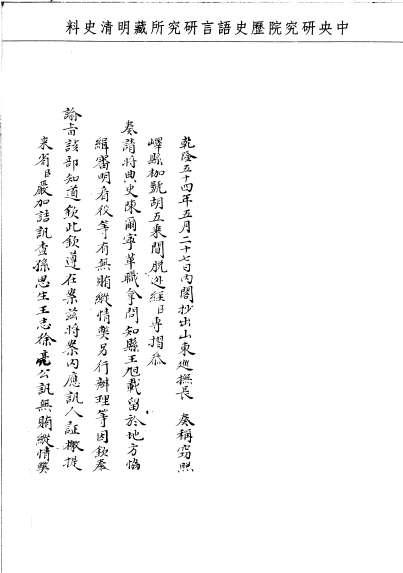 中央研究院歷史語言研究所藏明清史料
乾隆五十四年五月二十七日內閣抄出山東巡撫長 奏稱竊照
嶧縣枷號胡五乘間脫逃經臣專摺恭
奏請將典史陳爾寧革職拿問知縣王旭載留於地方協
緝審明看役等有無賄縱情獘另行辦理等因欽奉
諭旨該部知道欽此欽遵在案茲將案內應訊人証檄提
來省臣嚴加詰訊查孫思生王志徐亮公訊無賄縱情獘